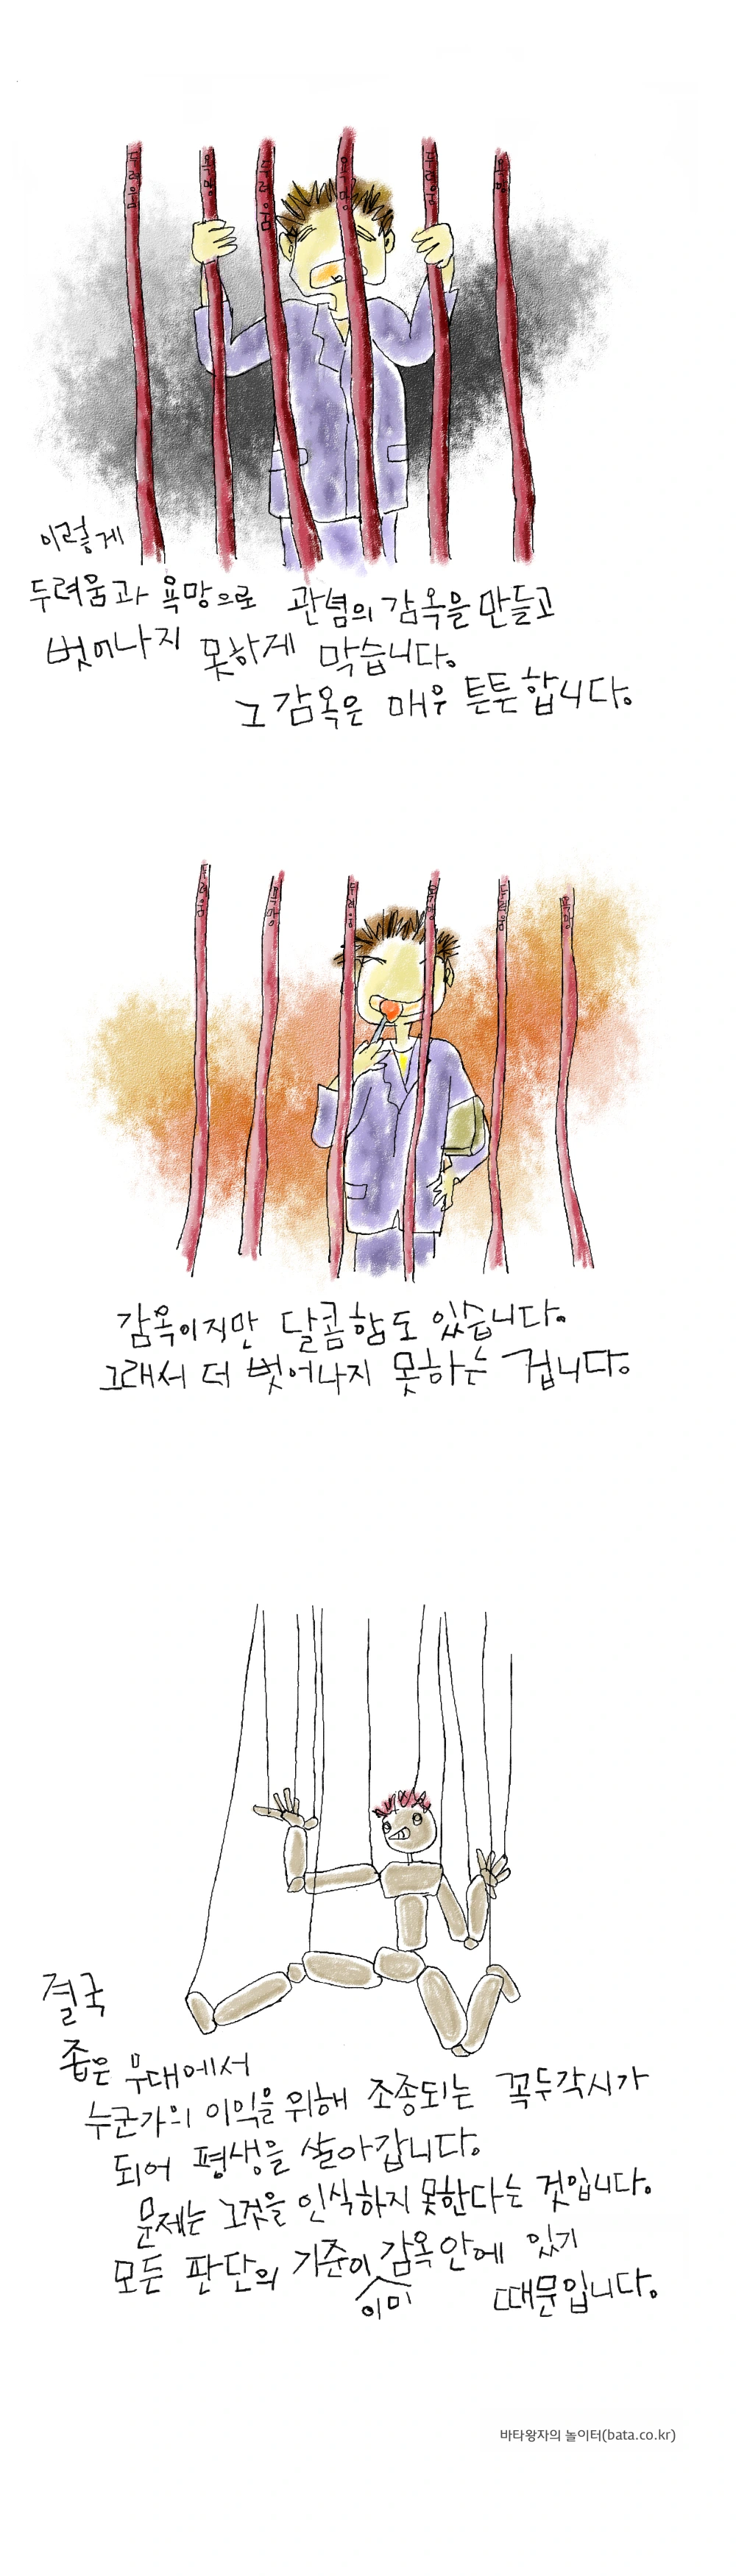 두려움 욕망 두려움 욕망 두려움 욕망
이렇게
두려움과 욕망으로 관념의 감옥을 만들고
벗어나지 못하게 막습니다.
그 감옥은 매우 튼튼합니다.
두려움 욕망 두려움 욕망 두려움 욕망
감옥이지만 달콤함도 있습니다.
그래서 더 벗어나지 못하는 겁니다.
결국
좁은 무대에서
누군가의 이익을 위해 조종되는 꼭두각시가
되어 평생을 살아갑니다.
문제는 그것을 인식하지 못한다는 것입니다.
모든 판단의 기준이 이미 감옥안에 있기
때문입니다.
바타왕자의 놀이터(bata.co.kr)